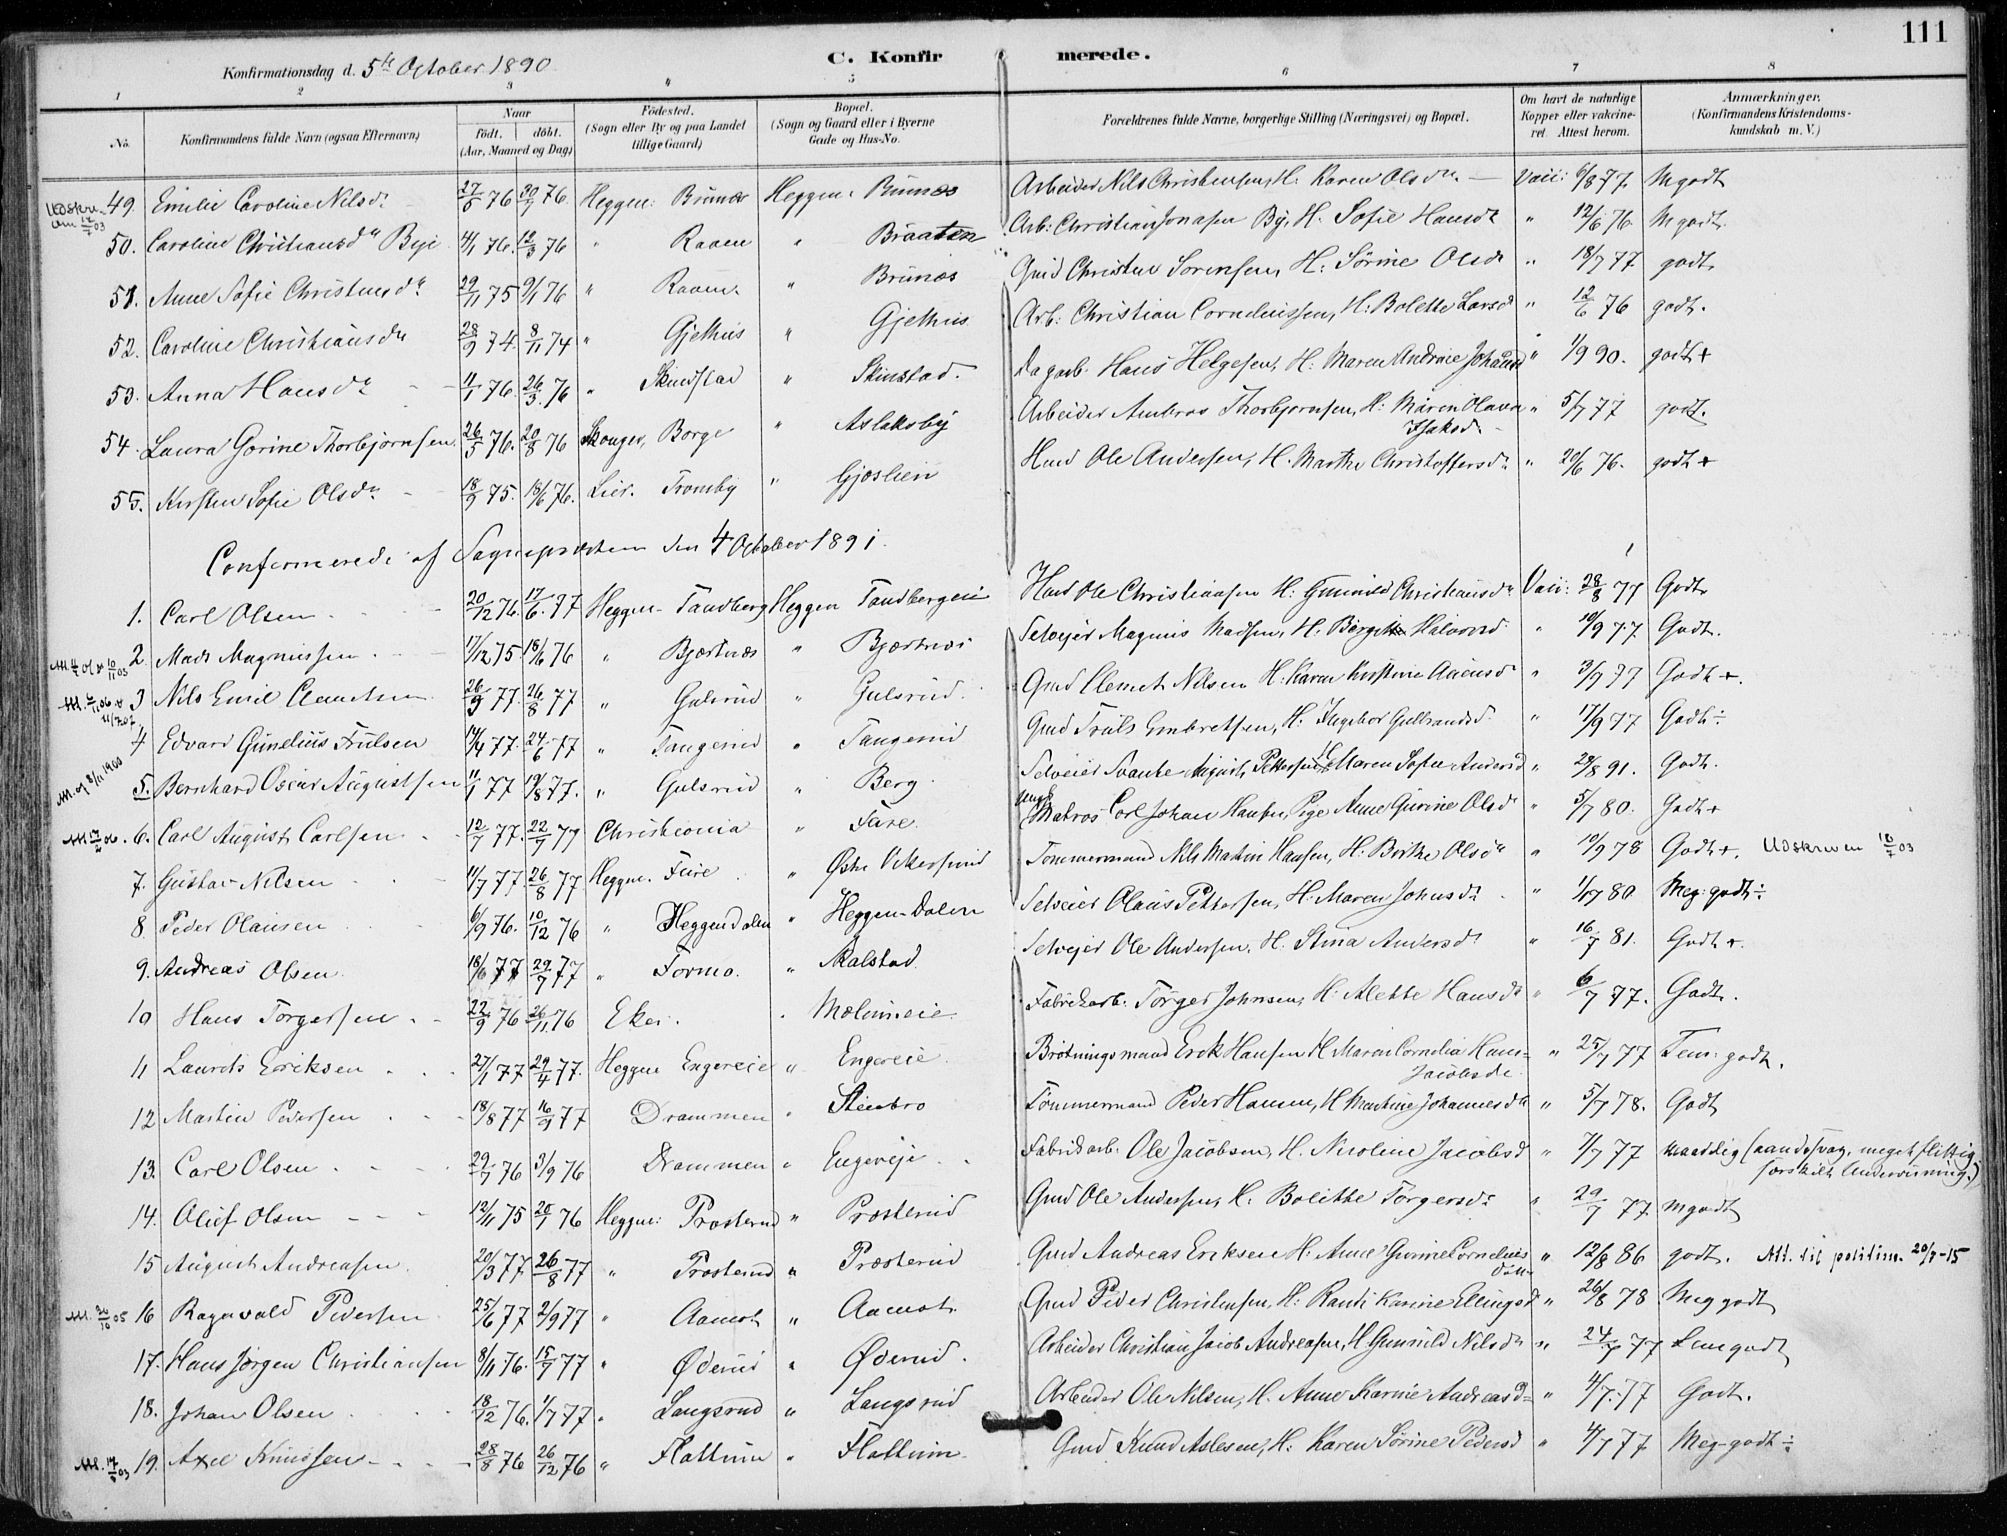 111
C. Konfir merede.
Konfirmationsdag d. 5te October 1890
1 2 3 5 6 7 8
No. Konfirmandens fulde Navn (ogsaa Efternavn) Naar födt. döbt. (Aar, Maaned og Dag) Födested. (Sogn eller By og paa Landet tillige Gaard) Bopæl. (Sogn og Gaard eller i Byerne Gade og Hus-No. Forældrenes fulde Navne, borgerlige Stilling (Næringsvei) og Bopæl. Om havt de naturlige Kopper eller vakcineret. Attest herom. Anmærkninger. (Konfirmandens Kristendomskundskab m. V.)
49. Emilie Caroline Nilsdr 76 76. Heggen: Brunæs Heggen. Brunæs Arbeider Nils Christensen, H. Karen Olsdr. — Vacc: 6/8 77. Mgodt
50. Caroline Christiansdr Bye 4/1 76. 12/3 76 " Raaen " Braaten Arb: Christian Jonasen By, H. Sofie Hansdr " 12/6 76. Mgodt.
51. Anne Sofie Christensdr 29/11 75 9/1 76 " Raaen. " Brunæs Gmd Christen Sörensen, H: Sörine Olsdr " 18/7 77 godt
52. Caroline Christiansdr 28/9 74. 8/11 74 " Gjethus " Gjethus Arb: Christian Corneliussen, H: Bolette Larsd " 12/6 76 godt.
53. Anna Hansdr 11/1 76. 26/3. 76 " Skinstad " Skinstad. Dagarb. Hans Helgesen, H: Maren Andrine Johansd " 1/9 90. godt +
54. Laura Gorine Thorbjørnsen. 26/5 76. 20/8 76 Skouger, Borge " Aslaksby Arbeider Ambros Thorbjørnsen, H: Maren Olava Isaksdr. " 5/7 77 godt.
55. Kirsten Sofie Olsdr 18/9 75. 18/6 76. Lier. Tromby " Gjøslien Hmd Ole Andersen, H. Marthe Christoffersdr " 20/6 76. godt +
Confirmerede af Sognepresten den 4 October 1891.
1. Carl Olsen. 20/12 76. 17/6. 77 Heggen- Tandberg Heggen Tandbergeie Hmd Ole Christiansen H: Gunild Christiansdr Vacc: 28/8 77 Godt
2. Mads Magnussen. 17/12 75. 18/6 76 " Bjertnæs " Bjertnæs Selvejer Magnus Madsen, H. Birgitte Halvorsd " 10/9 77 Godt.
3 Nils Emil Clemetsen 26/9 77. 26/8 77 " Gulsrud " Gulsrud. Gmd Clemet Nilsen H: Karen Kirstine " 3/9 77 Godt +.
4 Edvard Gunelius Trulsen 14/4 77. 24/6 77 " Tangerud " Tangerud Gmd Truls Embretsen, H. Ingebor Gulbrandsd. " 17/9 77 Godt ÷
5. Bernhard Oscar Augustsen 11/1 77 19/8 77. " Gulsrud " Berg. Selveier Svante August Pettersen H. Maren Sofie Andersd " 29/8 91. Godt.
6. Carl August Carlsen. 12/7 77. 22/7 77 Christiania " Fure. Ungk Matros Carl Johan Hansen, Pige Anne Gurine Olsdr " 5/7 80. Godt +
7. Gustav Nilsen 11/7 77 26/8 77 Heggen. Fure " Østre Vikersund Tømmermand Nils Martin Hansen, H: Berthe Olsdr " 10/9 78 Godt +. Udskreven 18/7 03
8. Peder Olausen 6/9 76. 10/12 76 " Heggendalen " Heggen-Dalen Selveier Olaus Pettersen, H. Maren Johnsdr " 1/7 80 Meg: godt ÷
9. Andreas Olsen. 18/6 77 29/7 77 " Formo. " Skalstad. Selvejer Ole Andersen. H. Stina Andersdr " 16/7 81. Godt +.
10 Hans Torgersen. 22/9 76 26/11 76 Eker. Melumeie. Fabrikarb: Torger Johnsen, H: Alette Hansdr " 6/7 77. Godt.
11 Laurits Eriksen 27/1 77 29/4 77. Heggen Engereie " Engereie. Brøtningsmand Erik Hansen H Maren Cornelia Hans- Jacobsdr. " 25/7 77 Tem: godt.
12 Martin Pedersen 18/8 77 16/9 77 Drammen " Stenbro Tømmermand Peder Hansen, H Martine Johannesdr " 5/7 78. Godt
13. Carl Olsen 29/7 76 3/9 76 Drammen " Engereje Fabrikarb. Ole Jacobsen, H. Nicoline Jacobsd " 7/7 77 maadelig (aandssvag, meget flittig, særskilt Undervisning.)
14. Oluf Olsen 12/11 75 20/1 76 Heggen: Prosterud " Præsterud Gmd Ole Andersen, H. Bolette Torgersdr " 29/7 77 mgodt
15 August Andreasen. 20/3 77 26/8 77 " Prosterud " Præsterud Gmd Andreas Eriksen H. Anne Gurine Cornelius datt " 12/8 86 godt. Att. til politim. 20/7-15
16 Ragnvald Pedersen 25/6 77 2/9 77 " Aamot " Aamot. Gmd Peder Christensen, H. Randi Karine Ellingsd " 26/8 78 Meg godt
17. Hans Jørgen Christiansen 8/11 76. 15/7 77 " Øderud " Øderud. Arbeider Christian Jacob Andreasen, H Gunild Nilsdr " 24/7 77 Temgodt
18. Johan Olsen 18/12 76. 1/7 77 " Langsrud " Langsrud Arbeider Ole Nilsen, H. Anne Karine Andreasd " 4/7. 77 Godt.
19. Axel Knudsen- 28/8 76 26/12 76 " Flattum " Flattum. Gmd Knud Aslesen, H: Karen Sörine Pedersd " 4/7 77 Meg-godt ÷